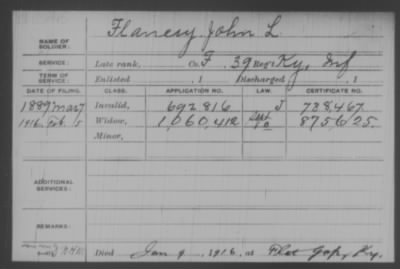 Flanery, John L
NAME OF SOLDIER:
SERVICE: Late rank, Co. F, 39 Reg't Ky, Inf
TERM OF SERVICE: Enlisted , 1 Discharged , 1
DATE OF FILING. CLASS. APPLICATION NO. LAW. CERTIFICATE NO.
1889 Invalid, 692,816 J 738,467
1916, Feb. 5 Widow, 1,060,412 875,625.
Minor,
ADDITIONAL SERVICES:
REMARKS:
Died Jan 9, 1916, at Flat Gap, Ky.